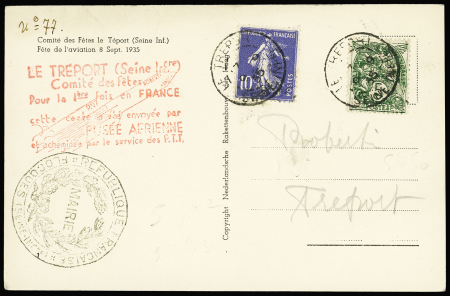 n° 77.
Comité des Fêtes le Téport (Seine Inf.)
Fête de l'aviation 8 Sept. 1935
LE TREPORT (Seine Ière)
Comité des fêtes
Pour la 1ère fois en FRANCE
cette carte a été envoyée par
FUSÉE AERIENNE
et acheminée par le service des P.T.T.
RÉPUBLIQUE FRANÇAISE
MAIRIE
LE TREPORT
10
POSTES
LE TREPORT
Copyright Nederlandsche Raketenbouw
Treport